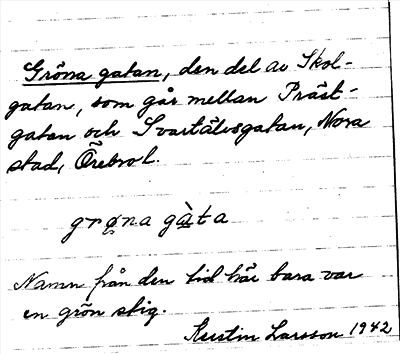 Gröna gatan, den del av Skol-
gatan, som går mellan Präst-
gatan och Svartälvsgatan, Nora
stad, Örebro l.
grø̨na gàta
Namn från den tid här bara var
en grön stig.
Kerstin Larsson 1942